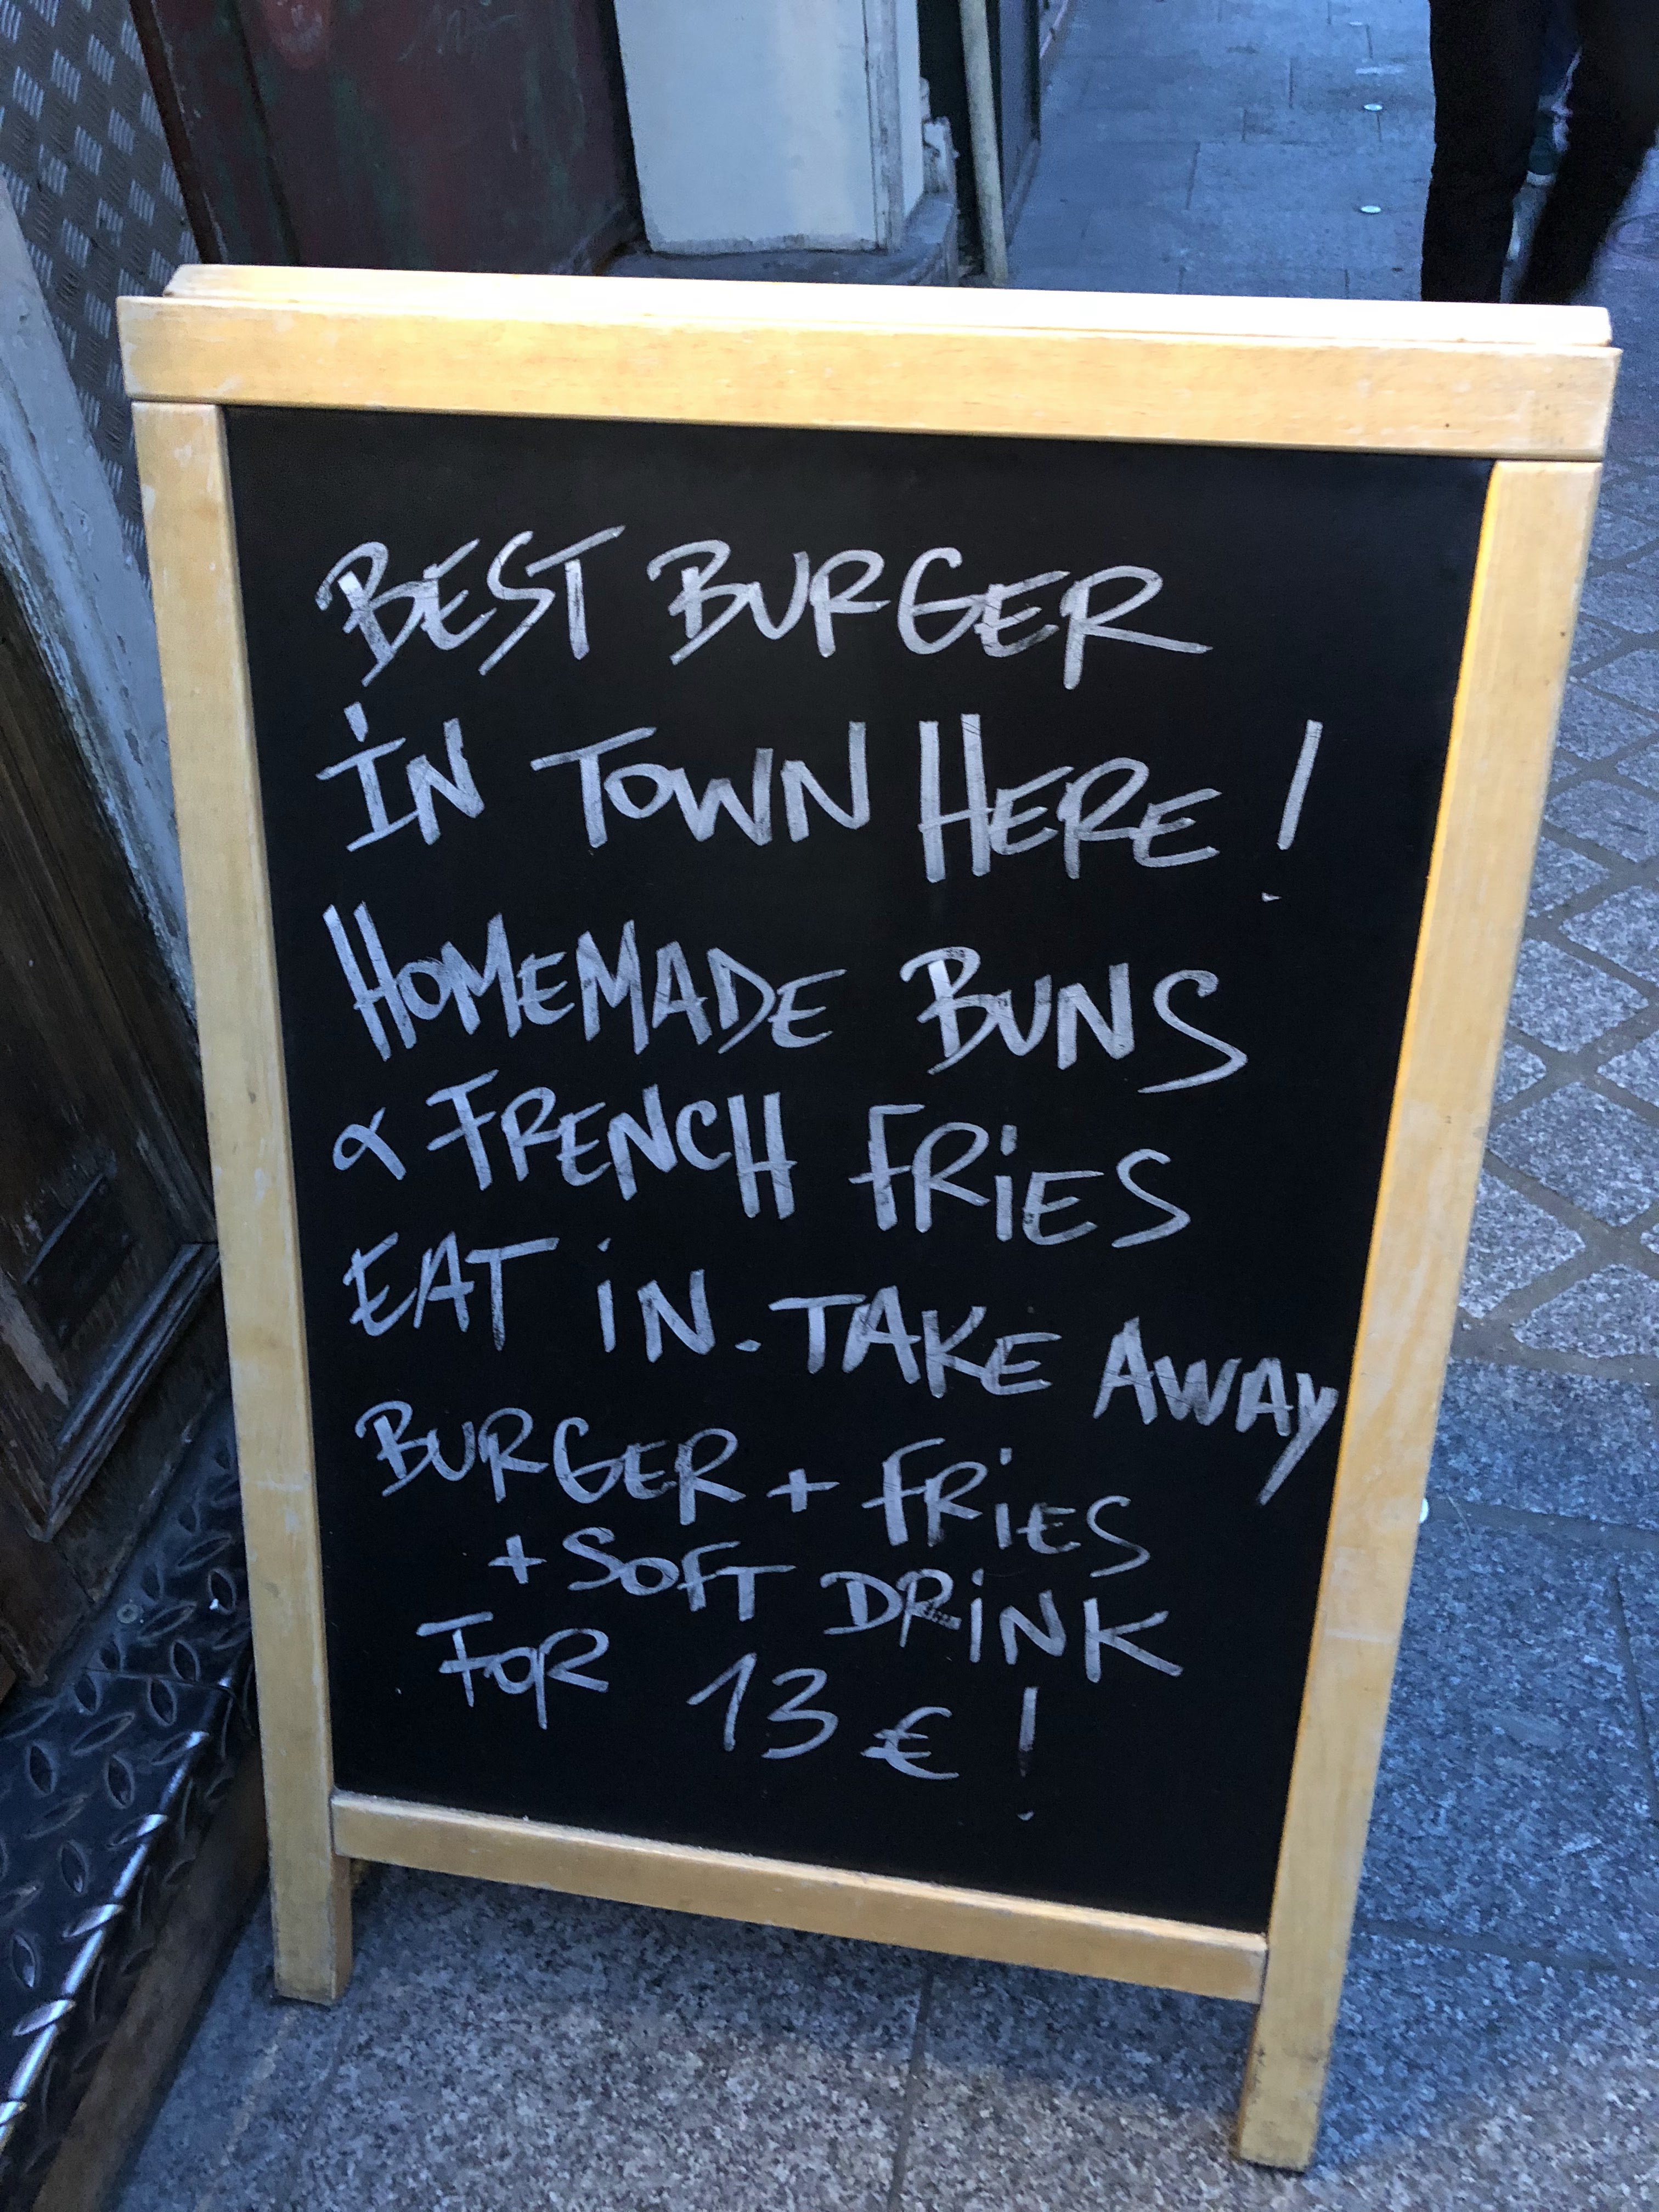 BEST BURGER
IN TOWN HERE !
HOMEMADE BUNS
& FRENCH FRIES
EAT IN. TAKE AWAY
BURGER + FRIES
+ SOFT DRINK
FOR 13 € !